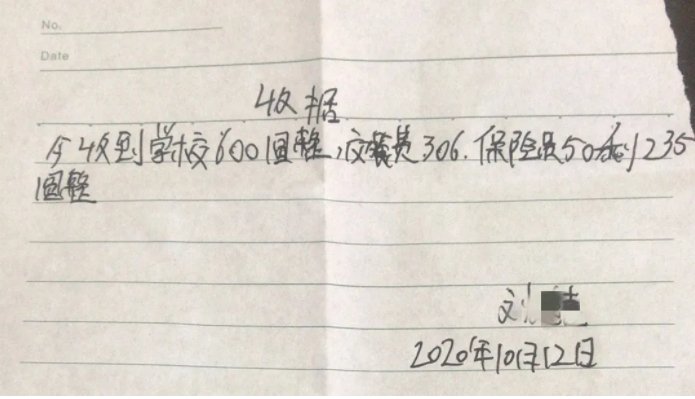 No.
Date
收据
今收到学校600圆整,交装费306.保险费50剩1235
圆整
刘
2020年10月12日